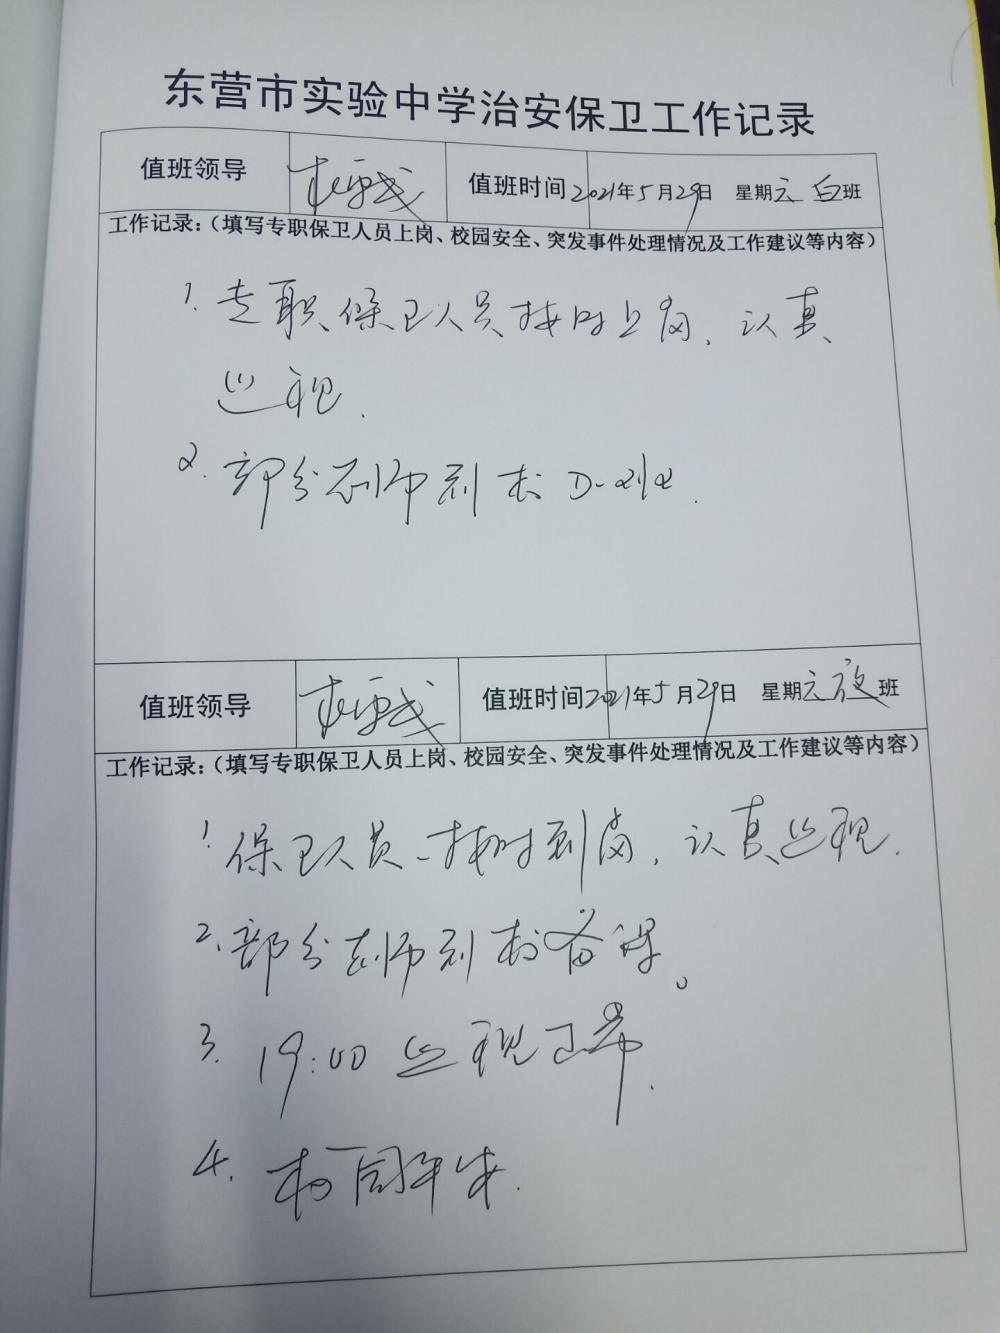 东营市实验中学治安保卫工作记录
值班领导 值班时间2021年5月29日 星期六 白班
工作记录：（填写专职保卫人员上岗、校园安全、突发事件处理情况及工作建议等内容）
1. 专职保卫人员按时上岗，认真
巡视.
2. 部分教师到校
值班领导 值班时间2021年5月29日 星期六夜班
工作记录：（填写专职保卫人员上岗、校园安全、突发事件处理情况及工作建议等内容）
1. 保卫人员按时到岗，认真巡视.
2. 部分教师到校备课。
3. 19:00 巡视正常.
4. 校园平安.